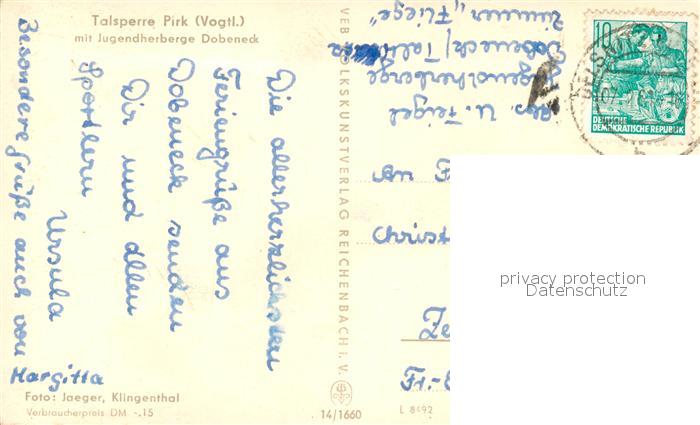 Talsperre Pirk (Vogtl.)
mit Jugendherberge Dobeneck
Die allerherzlichsten
Feriengrüße aus
Dobeneck senden
Dir und allen
Sportlern
Ursula
Besondere Grüße auch von
Margitta
Foto: Jaeger, Klingenthal
Verbraucherpreis DM -.15
VEB VOLKSKUNSTVERLAG REICHENBACH i. V.
14/1660
L 8492
Abs. U. Feigel
Jugendherberge
Dobeneck/
Zimmer „Fliege"
10
DEUTSCHE
DEMOKRATISCHE REPUBLIK
OELSNITZ
An
Christ
Fr.-
privacy protection
Datenschutz